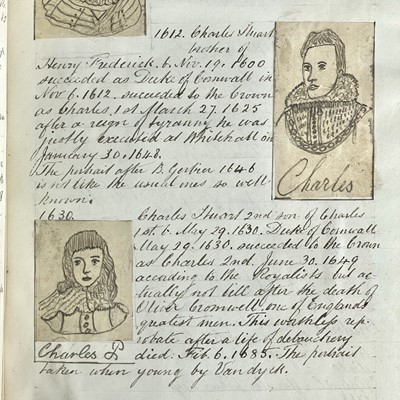 1612. Charles Stuart
brother of
Henry Frederick. b. Nov. 19. 1600
succeeded as Duke of Cornwall in
Nov 6. 1612. succeeded to the Crown
as Charles, 1st March 27. 1625
after a reign of tyranny he was
justly executed at Whitehall on
January 30. 1648.
The portrait after B. 1646
is not like the usual ones so well
known.
Charles
1630. Charles Stuart 2nd son of Charles
1st. b. May 29. 1630. Duke of Cornwall
May 29. 1630. succeeded to the Crown
as Charles 2nd. June 30. 1649
according to the Royalists but ac-
tually not till after the death of
Oliver Cromwell one of Englands
greatest men. This worthlys rep-
robate after a life of debauchery
died. Feb. 6. 1685. The portrait
taken when young by Vandyck.
Charles P